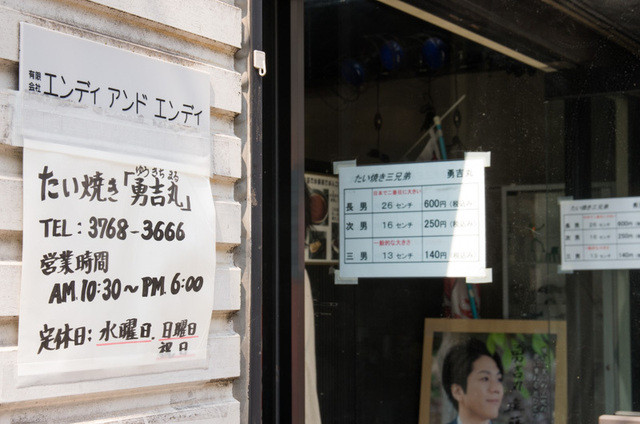 有限会社 エンディ アンド エンディ
ゆうきちまる
たい焼き「勇吉丸」
TEL:3768-3666
営業時間
AM.10:30〜PM.6:00
定休日:水曜日.日曜日
祝日
たい焼き三兄弟 勇吉丸
日本で二番目に大きい
長男 26センチ 600円(税込み)
次男 16センチ 250円(税込み)
一般的な大きさ
三男 13センチ 140円(税込み)
たい焼き三兄弟
長男 26センチ 600円
次男 16センチ 250円
三男 13センチ 140円
勇吉丸